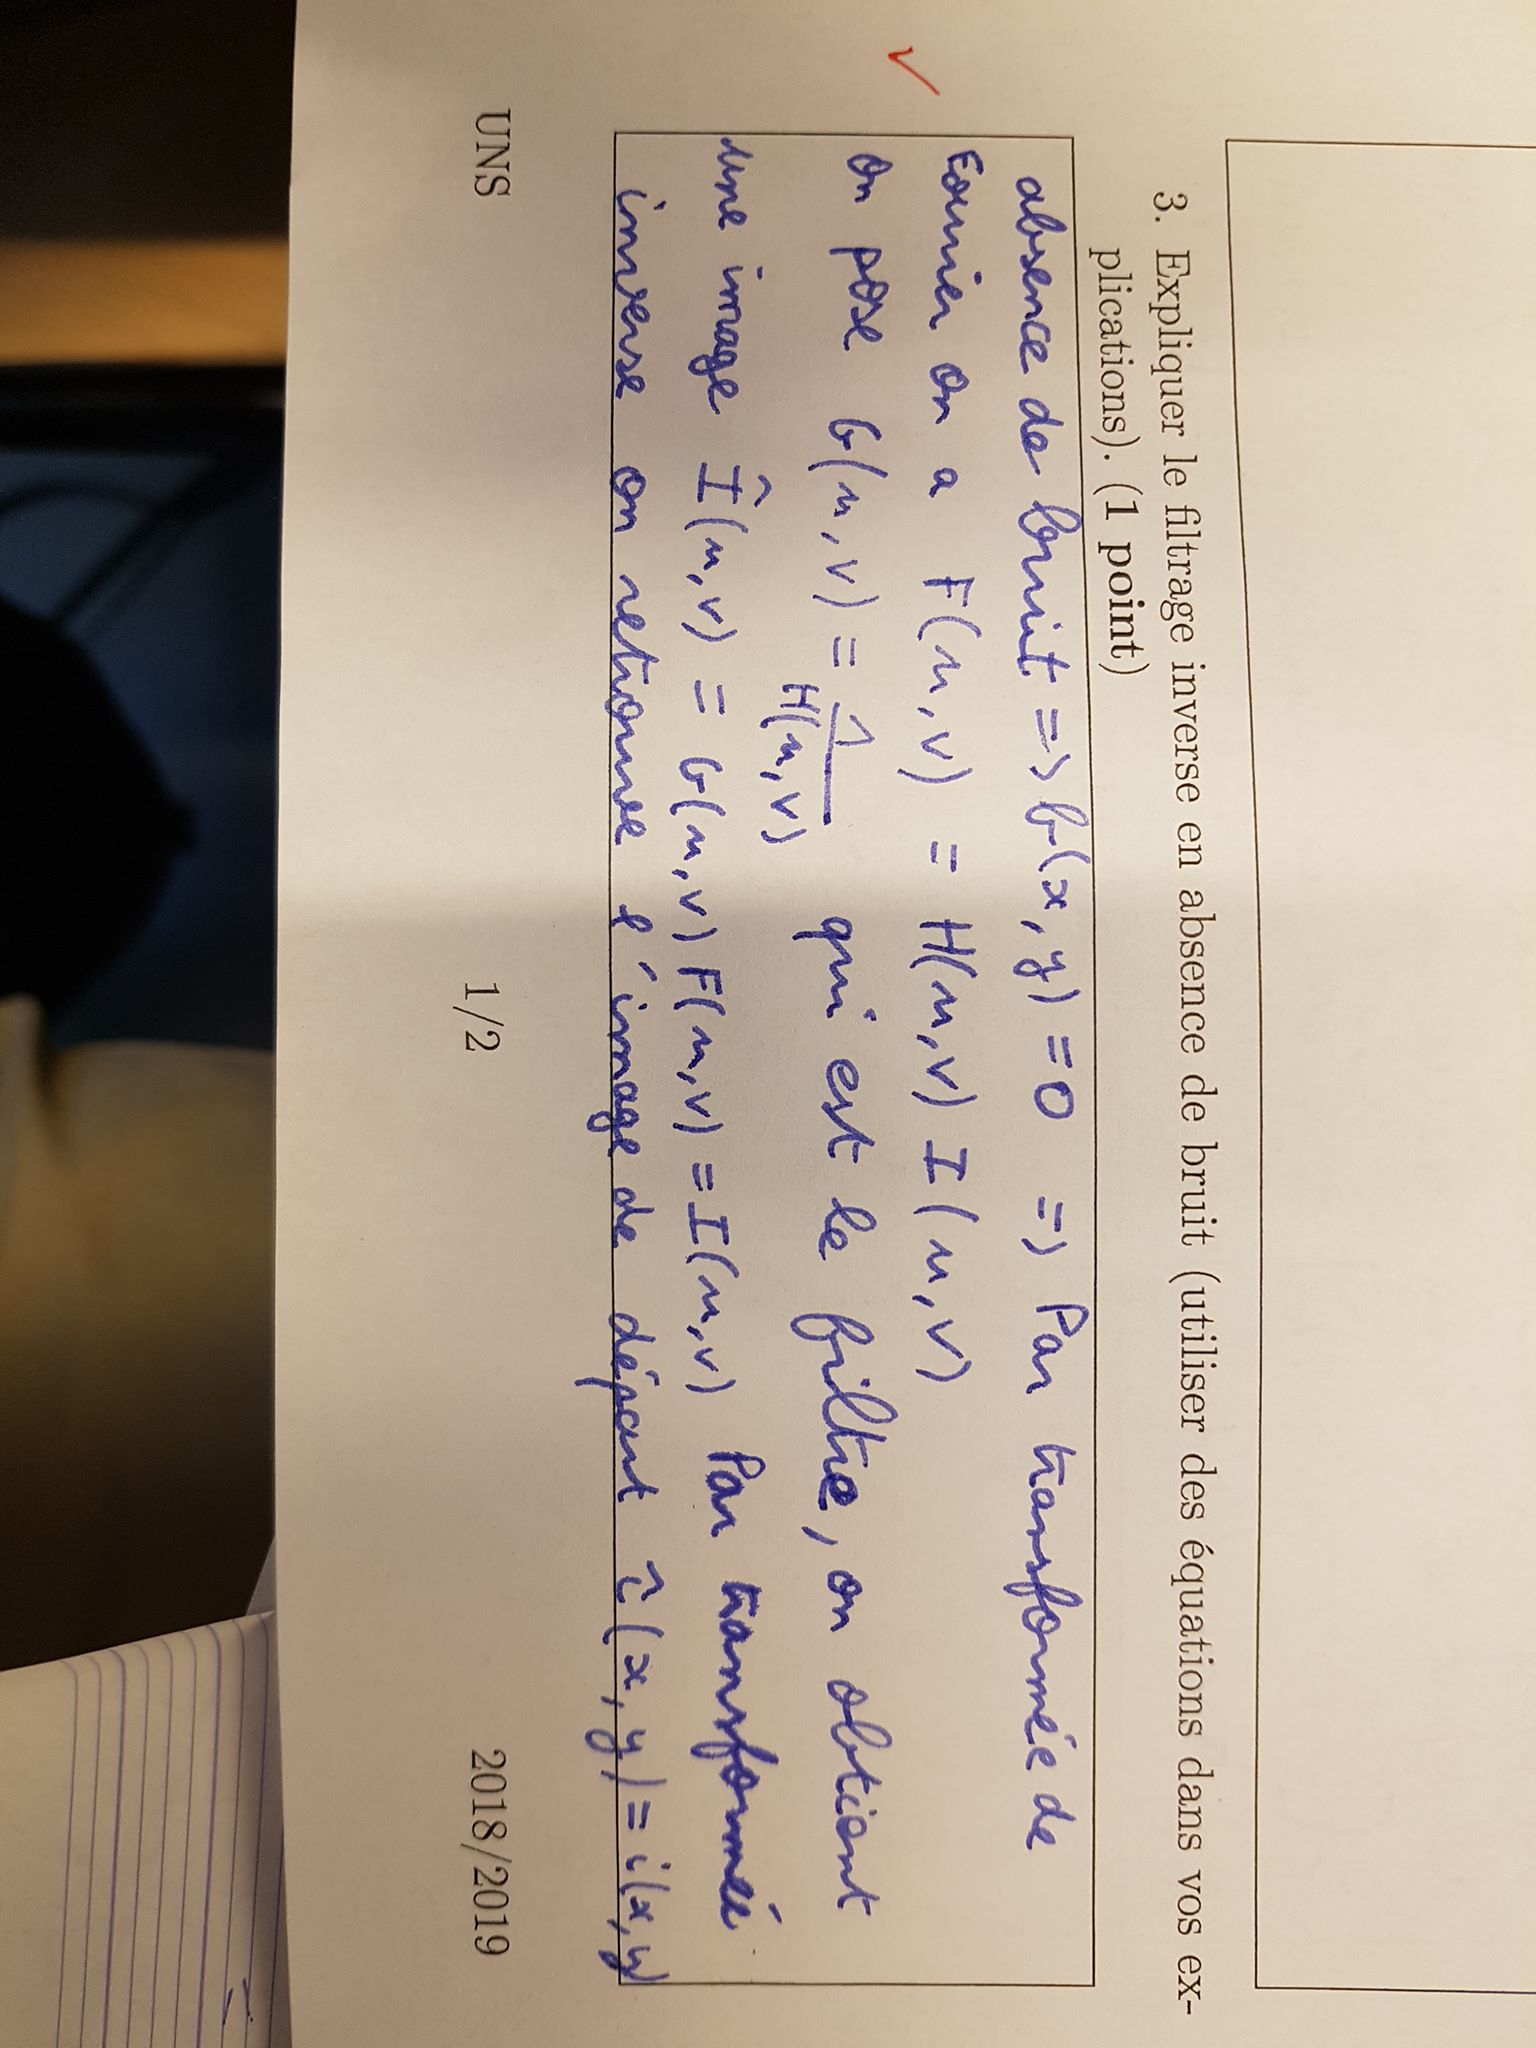 3. Expliquer le filtrage inverse en absence de bruit (utiliser des équations dans vos ex-
plications). (1 point)
absence de bruit => b(x,y) = 0 => Par transformée de
Fourier on a F(u,v) = H(u,v) I(u,v)
on pose G(u,v) = 1/H(u,v) qui est le filtre, on obtient
une image Î(u,v) = G(u,v) F(u,v) = I(u,v) Par transformée
inverse on retrouve l'image de départ î(x,y) = i(x,y)
UNS 1/2 2018/2019